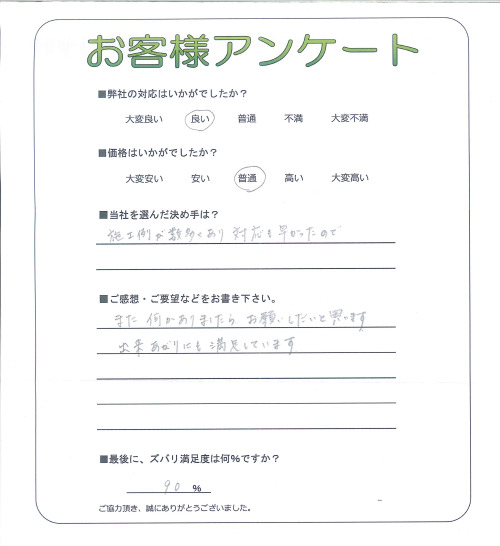 お客様アンケート
■弊社の対応はいかがでしたか？
大変良い 良い 普通 不満 大変不満
■価格はいかがでしたか？
大変安い 安い 普通 高い 大変高い
■当社を選んだ決め手は？
施工例が数多くあり 対応も早かったので
■ご感想・ご要望などをお書き下さい。
また 何かありましたら お願いしたいと思います
出来あがりにも 満足しています
■最後に、ズバリ満足度は何%ですか？
90 %
ご協力頂き、誠にありがとうございました。